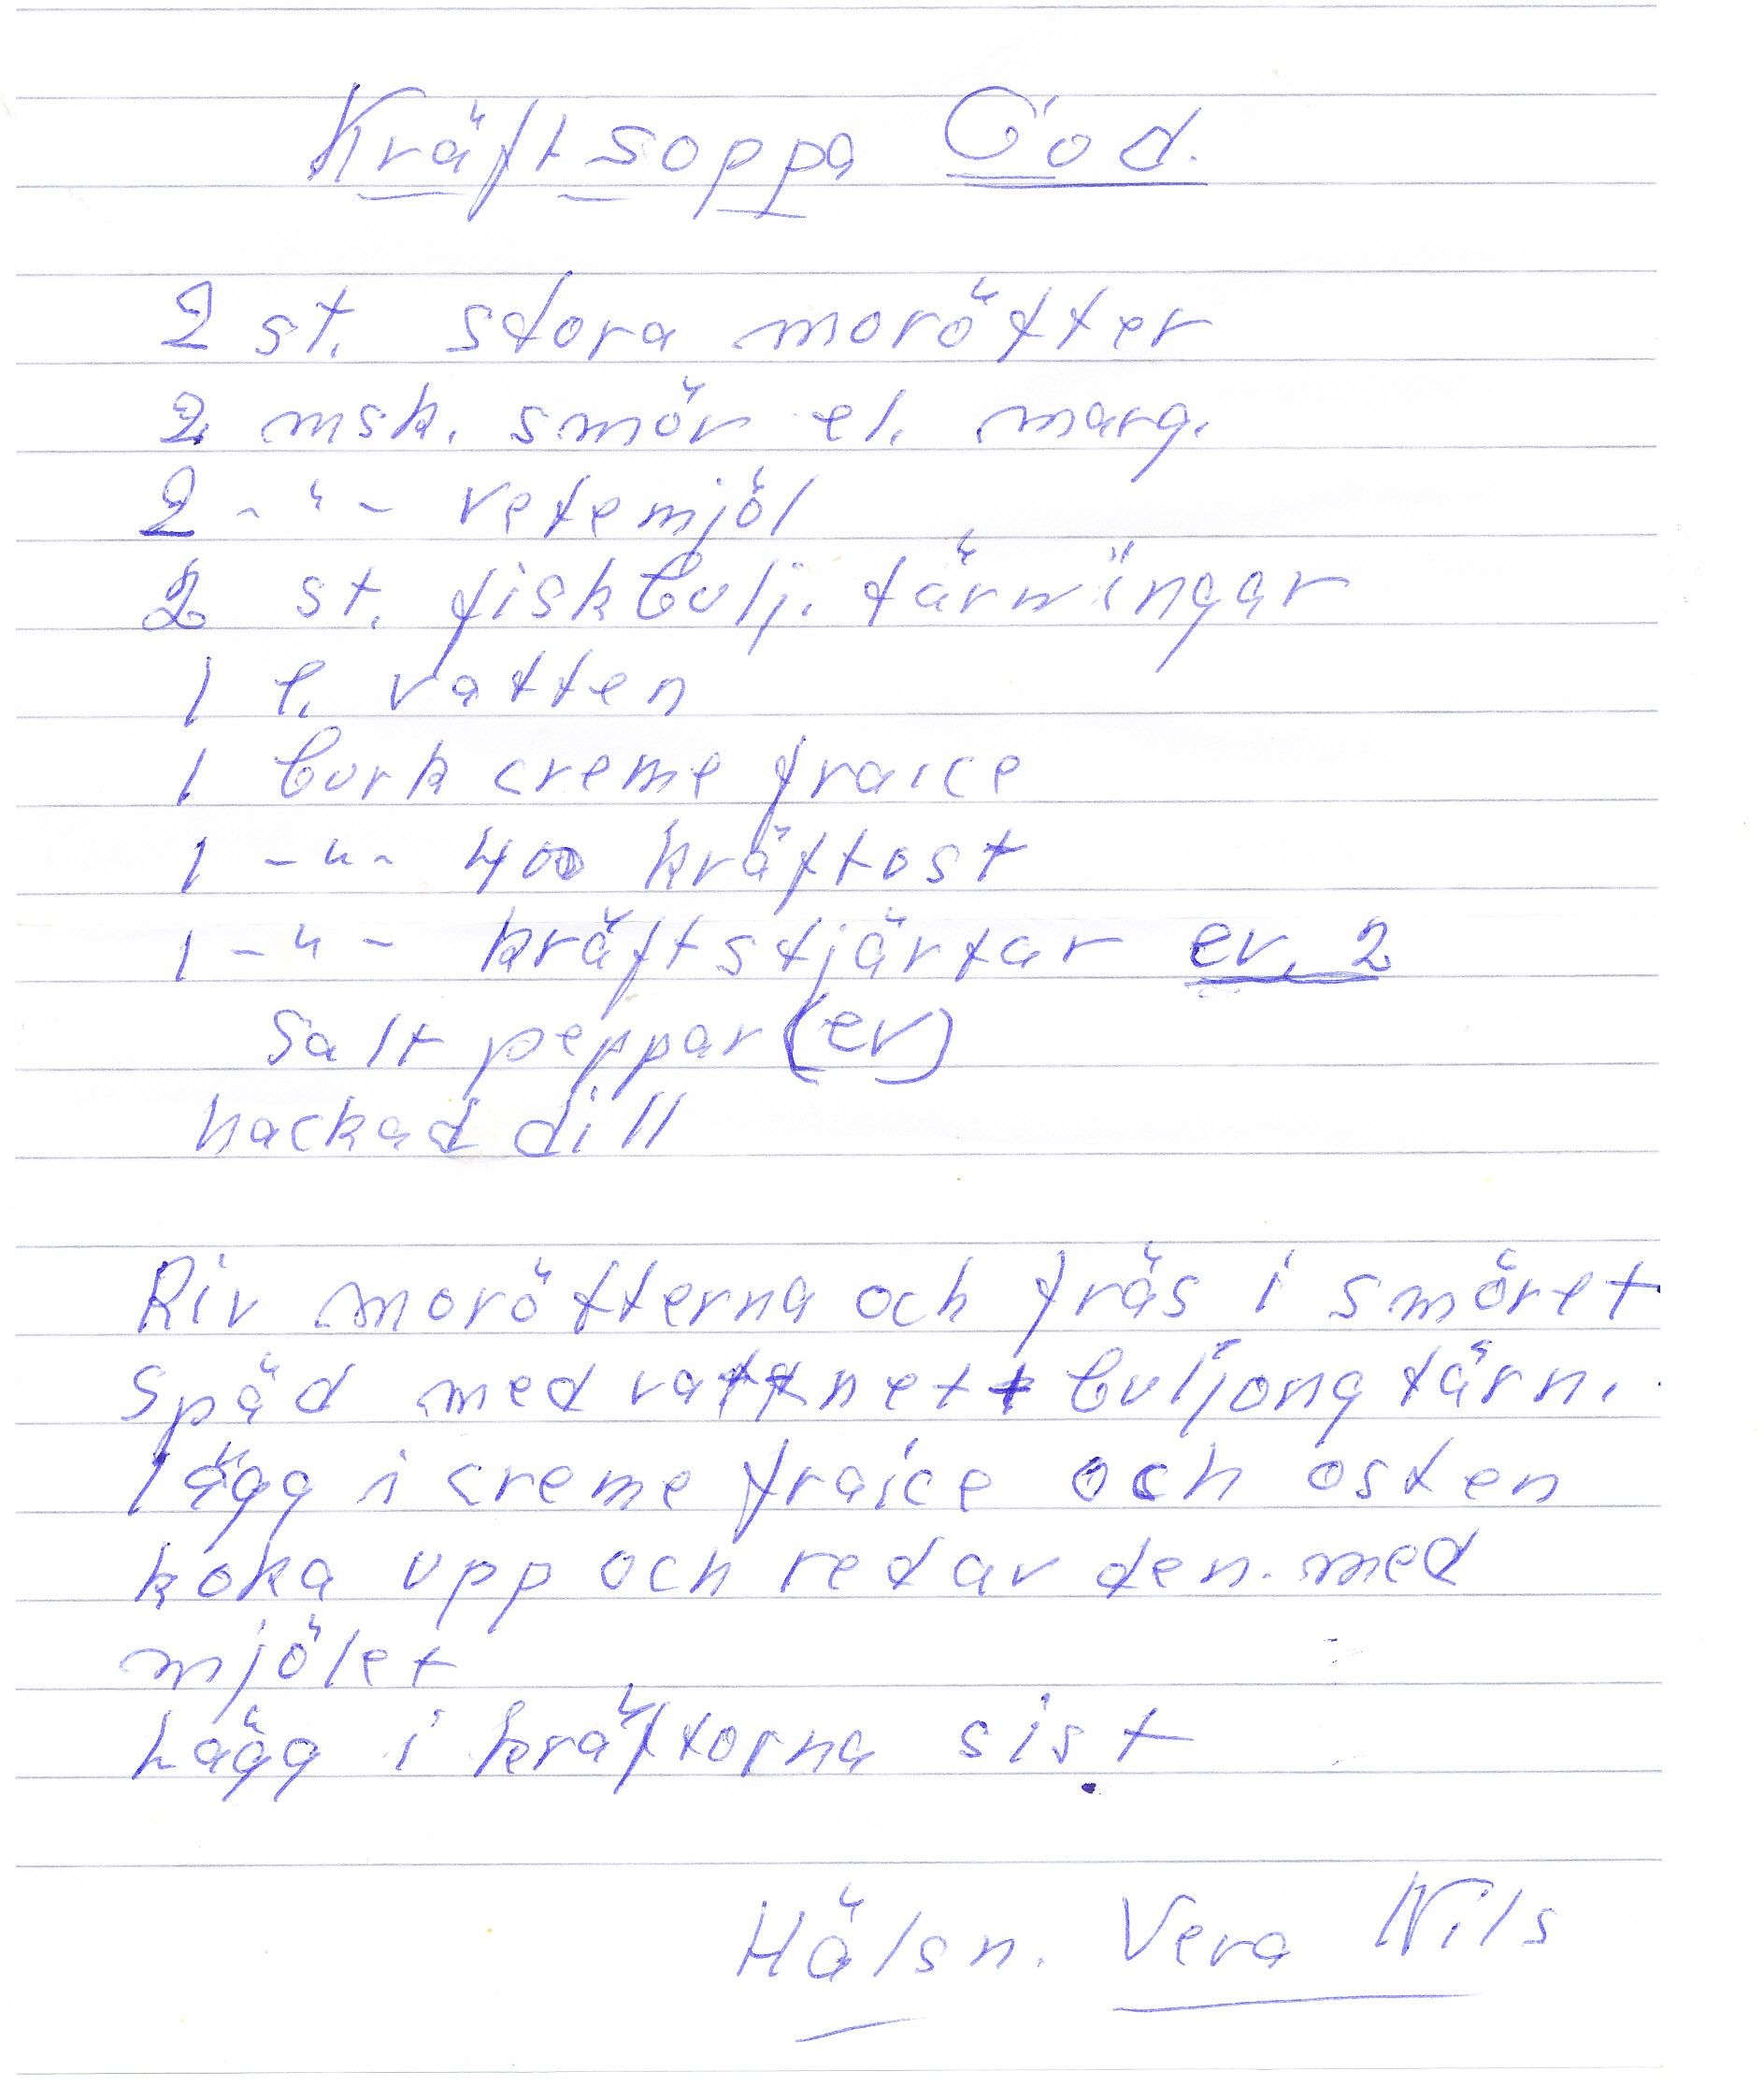 Kräftsoppa God.
2 st. stora morötter
2 msk. smör el. marg.
2 -"- vetemjöl
2 st. fiskbulj. tärningar
1 l. vatten
1 burk creme fraice
1 -"- 400 kräftost
1 -"- kräftstjärtar ev. 2
Salt peppar (ev)
hackad dill
Riv morötterna och fräs i smöret
Späd med vattnet + buljongtärn.
lägg i creme fraice och osten
koka upp och red av den. med
mjölet
Lägg i kräftorna sist.
Hälsn. Vera Nils